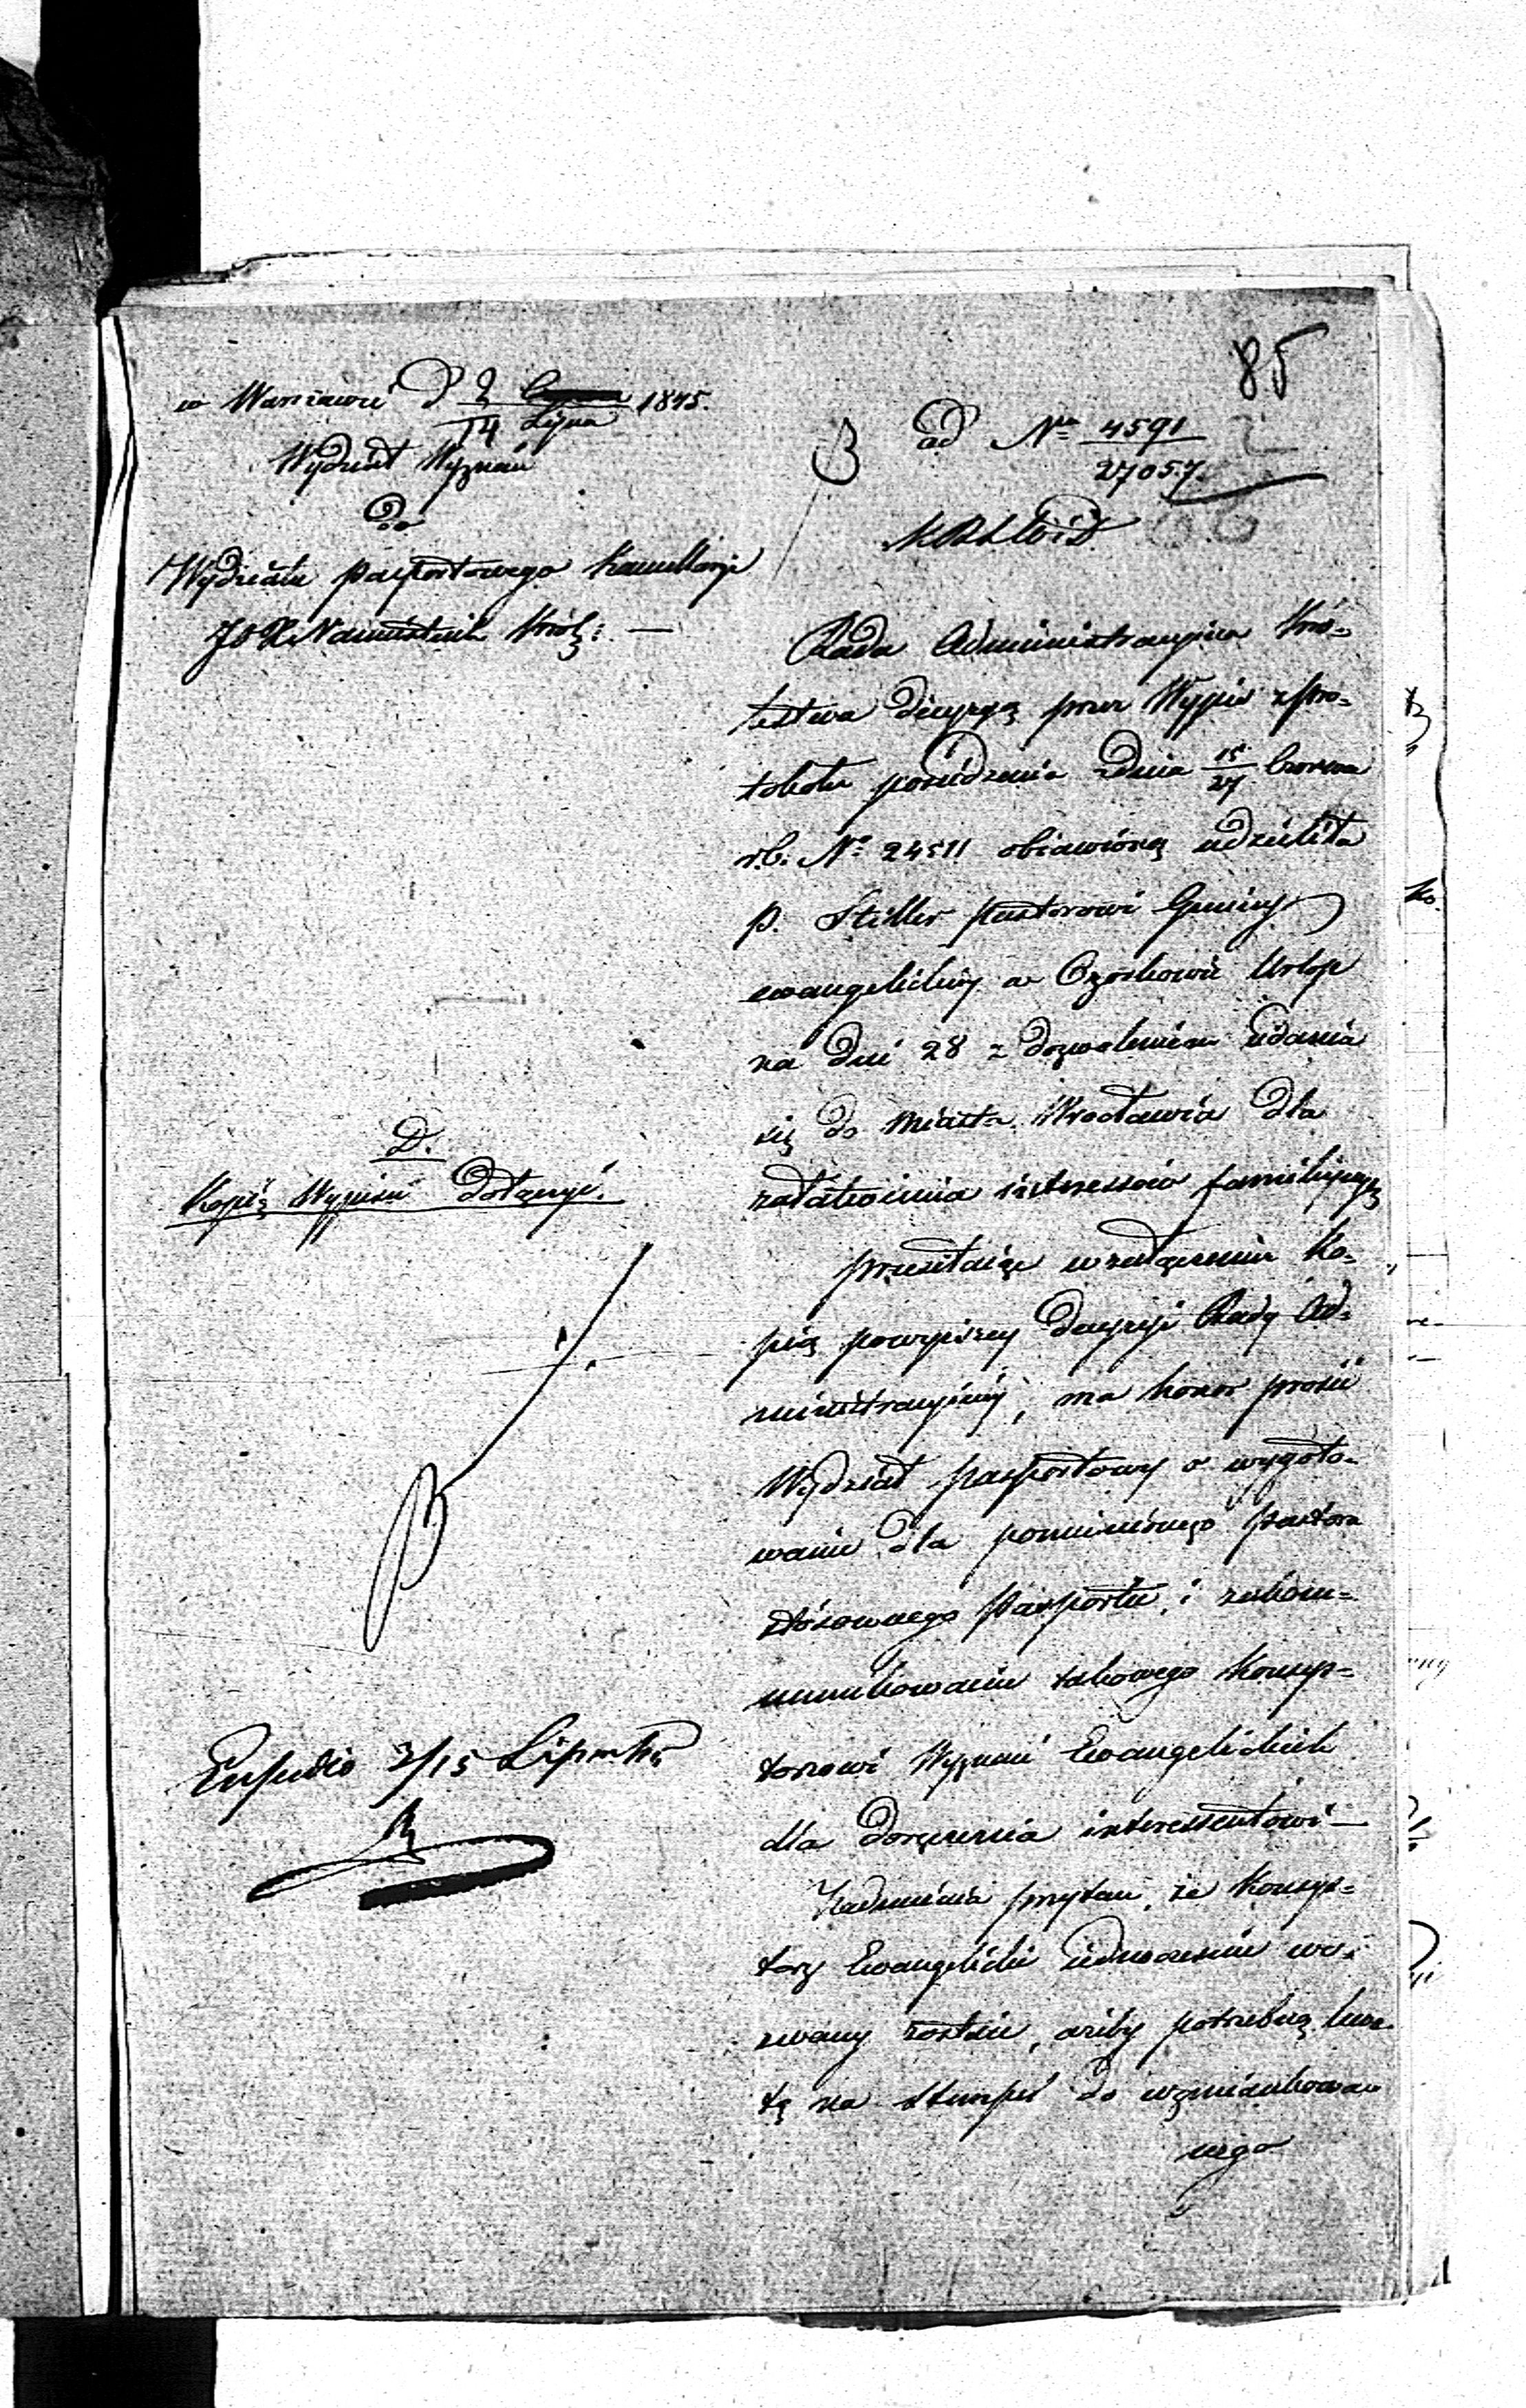 85
w Warszawie d 2/14 Lipca 1845.
Wydział Wyznań
Do
Wydziału paszportowego Kancellaryi
JO X Namiestnika Król:
ad Nr 4591/27057.
Rada Administracyjna Kró-
lestwa decyzyą przez Wypis z Pro-
tokołu posiedzenia z dnia 15/27 Czerwca
r.b. No 24511 obiawioną udzieliła
P. Stiller Pastorowi Gminy
ewangelickiéy w Ozorkowie Urlop
na dni 28 z dozwoleniem udania
się do Miasta Wrocławia dla
załatwienia interessów familijnych
przesyłaiąc w załączeniu Ko-
pią powyższéy decyzyi Rady Ad-
ministracyinéy, ma honor prosić
Wydział paszportowy o wygoto-
wanie dla pomienionego Pastora
stósownego Paszportu, i zakom-
munikowanie takowego Konsys-
torzowi Wyznań Ewangelickich
dla doręczenia interessentowi —
Nadmienia przytem, że Konsys-
torz Ewangelicki iednocześnie we-
zwany zostaie, ażeby potrzebną kwo-
tę na stempel do wzmiankowa-
nego
D.
Kopią Wypisu dołączyć.
Expedio 3/15 Lipca